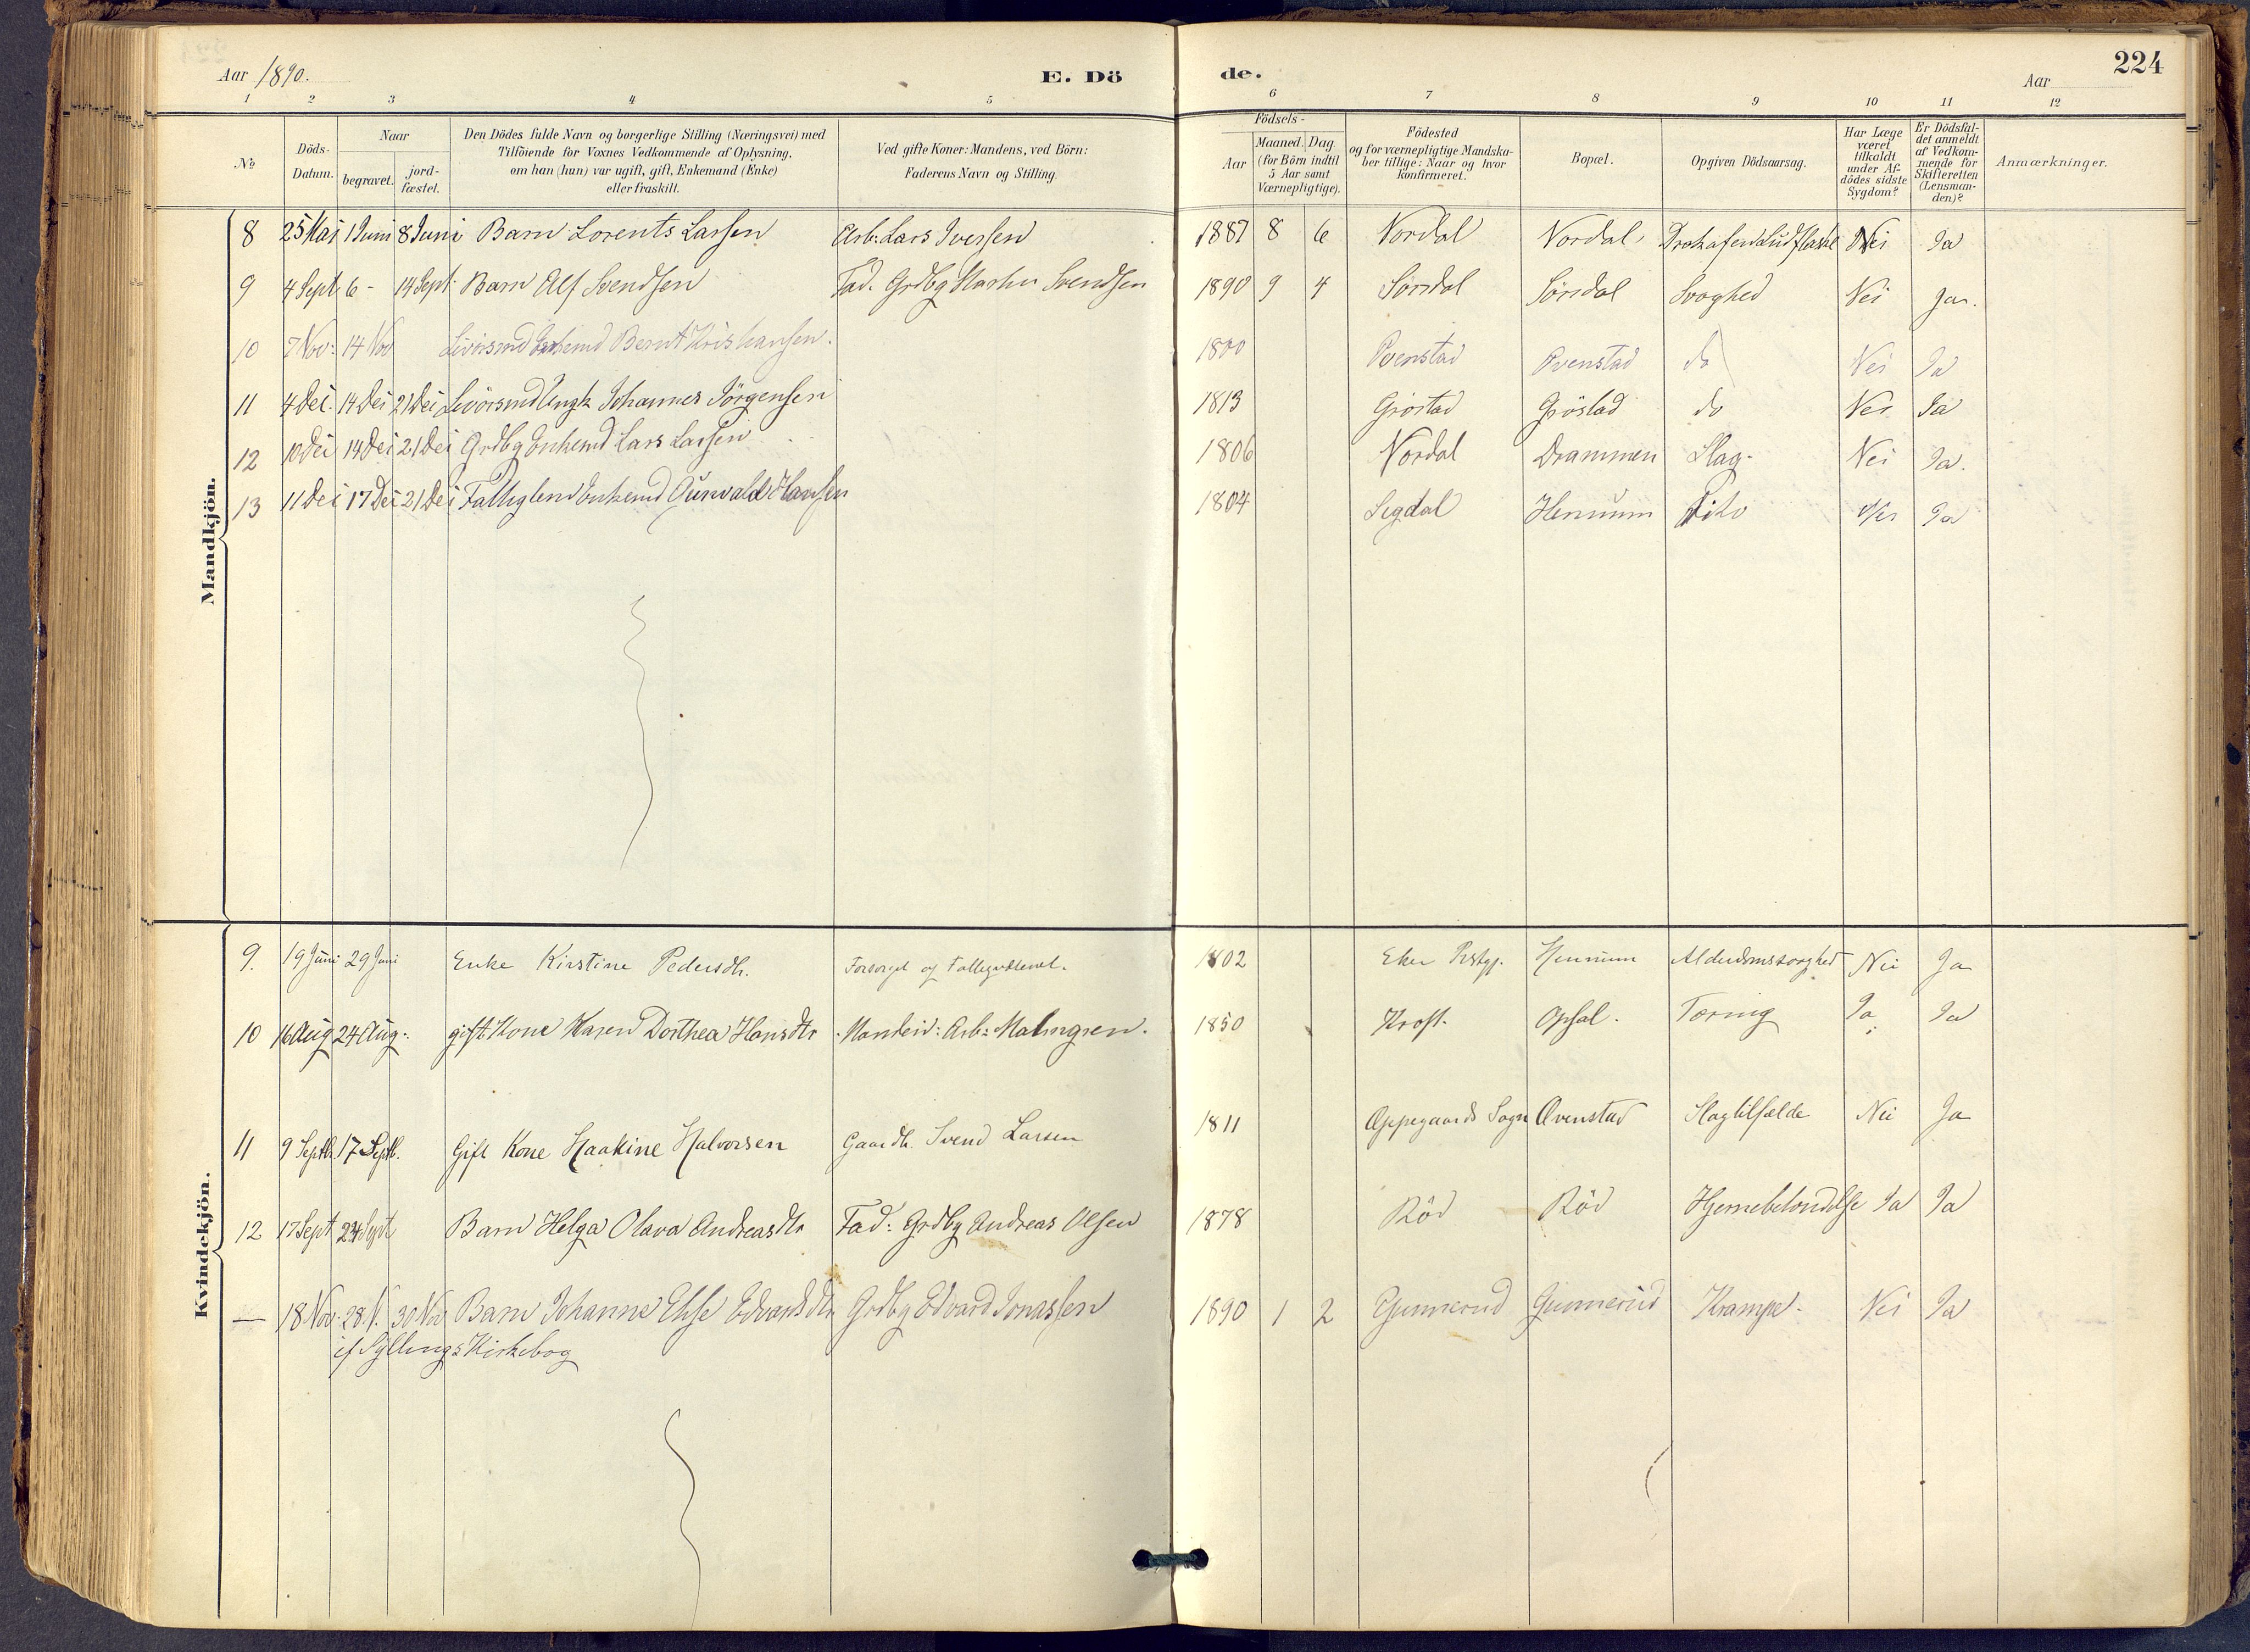 Aar 1890. E. Dö de. Aar 224
1 2 3 4 5 6 7 8 9 10 11 12
№
Döds-Datum.
Naar
begravet.
jord-fæstet.
Den Dödes fulde Navn og borgerlige Stilling (Næringsvei) med
Tilföiende for Voxnes Vedkommende af Oplysning,
om han (hun) var ugift, gift, Enkemand (Enke)
eller fraskilt.
Ved gifte Koner: Mandens, ved Börn:
Faderens Navn og Stilling.
Födsels-
Aar
Maaned. Dag
(for Börn indtil
5 Aar samt
Værnepligtige).
Födested
og for værnepligtige Mandska-
ber tillige: Naar og hvor
konfirmeret.
Bopæl.
Opgiven Dödsaarsag.
Har Læge
været
tilkaldt
under Af-
dödes sidste
Sygdom?
Er Dödsfal-
det anmeldt
af Vedkom-
mende for
Skifteretten
(Lensman-
den)?
Anmærkninger.
Mandkjön.
8 25 Mai 1 Juni 8 Juni Barn Lorents Larsen Arb: Lars Iversen 1887 8 6 Nordal Nordal Nei Ja
9 4 Sept 6 - 14 Sept Barn Alf Svendsen Fad. Grdbg Svendsen 1890 9 4 Sörsdal Sörsdal Svaghed Nei Ja.
10 7 Nov: 14 Nov Bernt Kristiansen. Ovenstad Ovenstad do Nei Ja
11 4 Dei. 14 Dei 21 Dei Livörsmd Ungk Johannes Jörgensen 1813 Gröstad Gröstad do Nei Ja
12 10 Dei 14 Dei 21 Dei Grdbg Enkemd Lars Larsen 1806 Nordal Drammen Slag- Nei Ja.
13 11 Dei 17 Dei 21 Dei Fattiglem Enkemd Gunvald Hansen 1804 Sigdal Hennum Nei Ja
Kvindekjön.
9. 19 Juni 29 Juni Enke Kirstine Pedersdtr. Forsörget af Fattigvæsenet. 1802 Eker Prstgj. Hennum Alderdomssvaghed Nei Ja
10 16 Aug 24 Aug: gift Kone Karen Dorthea Hansdtr Manden: Arb: Malmgren. 1850 Kroft. Opsal. Tæring Ja Ja
11 9 Septb. 17 Septb. Gift Kone Haakine Halvorsen Gaardb. Svend Larsen 1811 Oppegaards Sogn Ovenstad Slagtilfælde Nei Ja
12 17 Sept 24 Sept Barn Helga Olava Andreasdtr Fad: Grdbg Andreas Olsen 1878 Röd Röd Hjernebetændelse Ja Ja
— 18 Nov. 28 N. 30 Nov Barn Johanne Elise Edvardsdtr Grdbg Edvard Jonassen 1890 1 2 Gunnerud Gunnerud Krampe. Nei Ja
cf Syllings Kirkebog